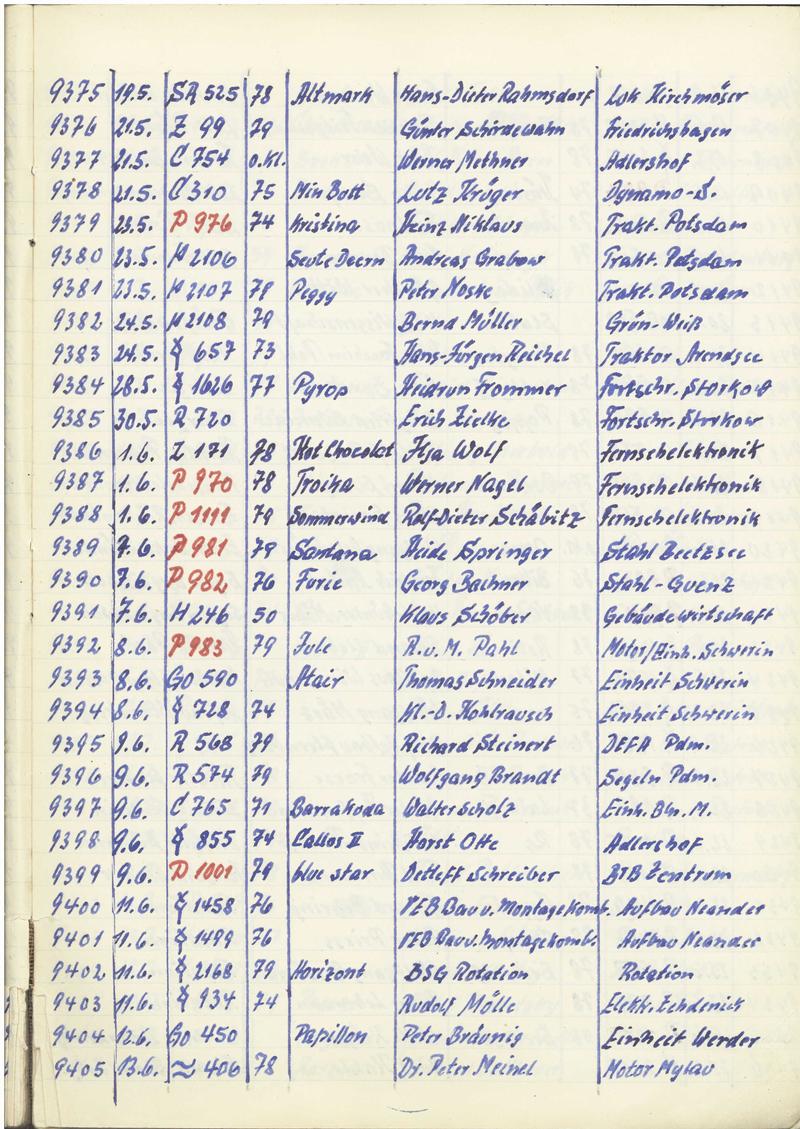 9375 19.5. SR 525 78 Altmark Hans-Dieter Rahmsdorf Lok Kirchmöser
9376 21.5. Z 99 79 Günter Schirdewahn Friedrichshagen
9377 21.5. C 754 o.Kl. Werner Methner Adlershof
9378 21.5. C 310 75 Min Bott Lutz Krüger Dynamo-S.
9379 23.5. P 976 74 Kristina Heinz Niklaus Trakt. Potsdam
9380 23.5. 2106 Seute Deern Andreas Grabow Trakt. Potsdam
9381 23.5. 2107 78 Peggy Peter Noske Trakt. Potsdam
9382 24.5. 2108 79 Bernd Müller Grün-Weiß
9383 24.5. 657 73 Hans-Jürgen Reichel Traktor Arendsee
9384 28.5. 1626 77 Pyrop Heidrun Frommer Fortschr. Storkow
9385 30.5. R 720 Erich Zielke Fortschr. Storkow
9386 1.6. Z 171 78 Hot Chocolat Ilja Wolf Fernsehelektronik
9387 1.6. P 970 78 Troika Werner Nagel Fernsehelektronik
9388 1.6. P 1111 79 Sommerwind Ralf-Dieter Schäbitz Fernsehelektronik
9389 7.6. P 981 79 Sardana Heide Springer Stahl Beetzsee
9390 7.6. P 982 76 Furie Georg Bachner Stahl-Guenz
9391 7.6. H 246 50 Klaus Schöber Gebäudewirtschaft
9392 8.6. P 983 79 Jule R. u. M. Pahl Motor/Einh. Schwerin
9393 8.6. Go 590 Atair Thomas Schneider Einheit Schwerin
9394 8.6. 728 74 Kl.-D. Kohlrausch Einheit Schwerin
9395 9.6. R 568 79 Richard Steinert DEFA Pdm.
9396 9.6. R 574 79 Wolfgang Brandt Segeln Pdm.
9397 9.6. C 765 71 Barrakuda Walter Scholz Einh. Bln. M.
9398 9.6. 855 74 Callos II Horst Otte Adlershof
9399 9.6. D 1001 79 blue star Detleff Schreiber BTB Zentrum
9400 11.6. 1458 76 VEB Bau u. Montagekomb. Aufbau Neander
9401 11.6. 1499 76 VEB Bau u. Montagekomb. Aufbau Neander
9402 11.6. 2168 79 Horizont BSG Rotation Rotation
9403 11.6. 934 74 Rudolf Mölle Elektr. Zehdenick
9404 12.6. Go 450 Papillon Peter Bräunig Einheit Werder
9405 13.6. ≈ 406 78 Dr. Peter Meinel Motor Mylau